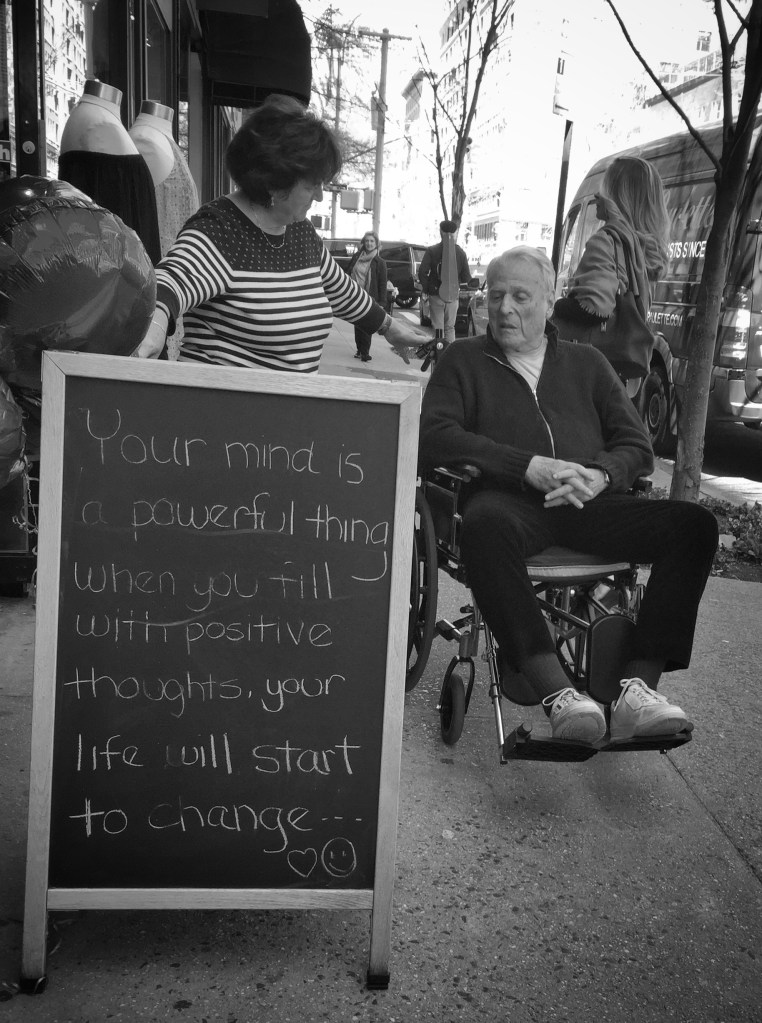 Your mind is
a powerful thing
when you fill
with positive
thoughts, your
life will start
to change---
STS SINCE
AULETTE.COM